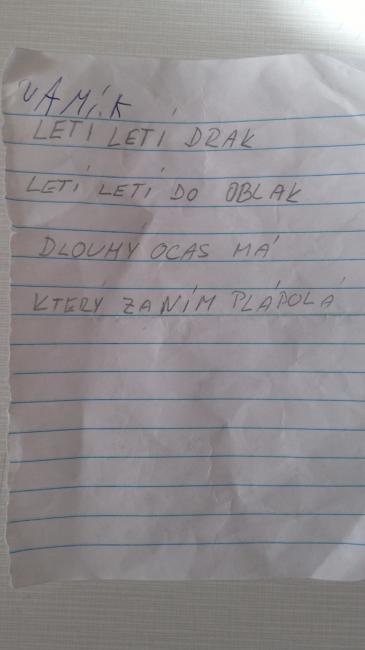 VAMÍK
LETÍ LETÍ DRAK
LETÍ LETÍ DO OBLAK
DLOUHÝ OCAS MÁ
KTERÝ ZA NÍM PLÁPOLÁ